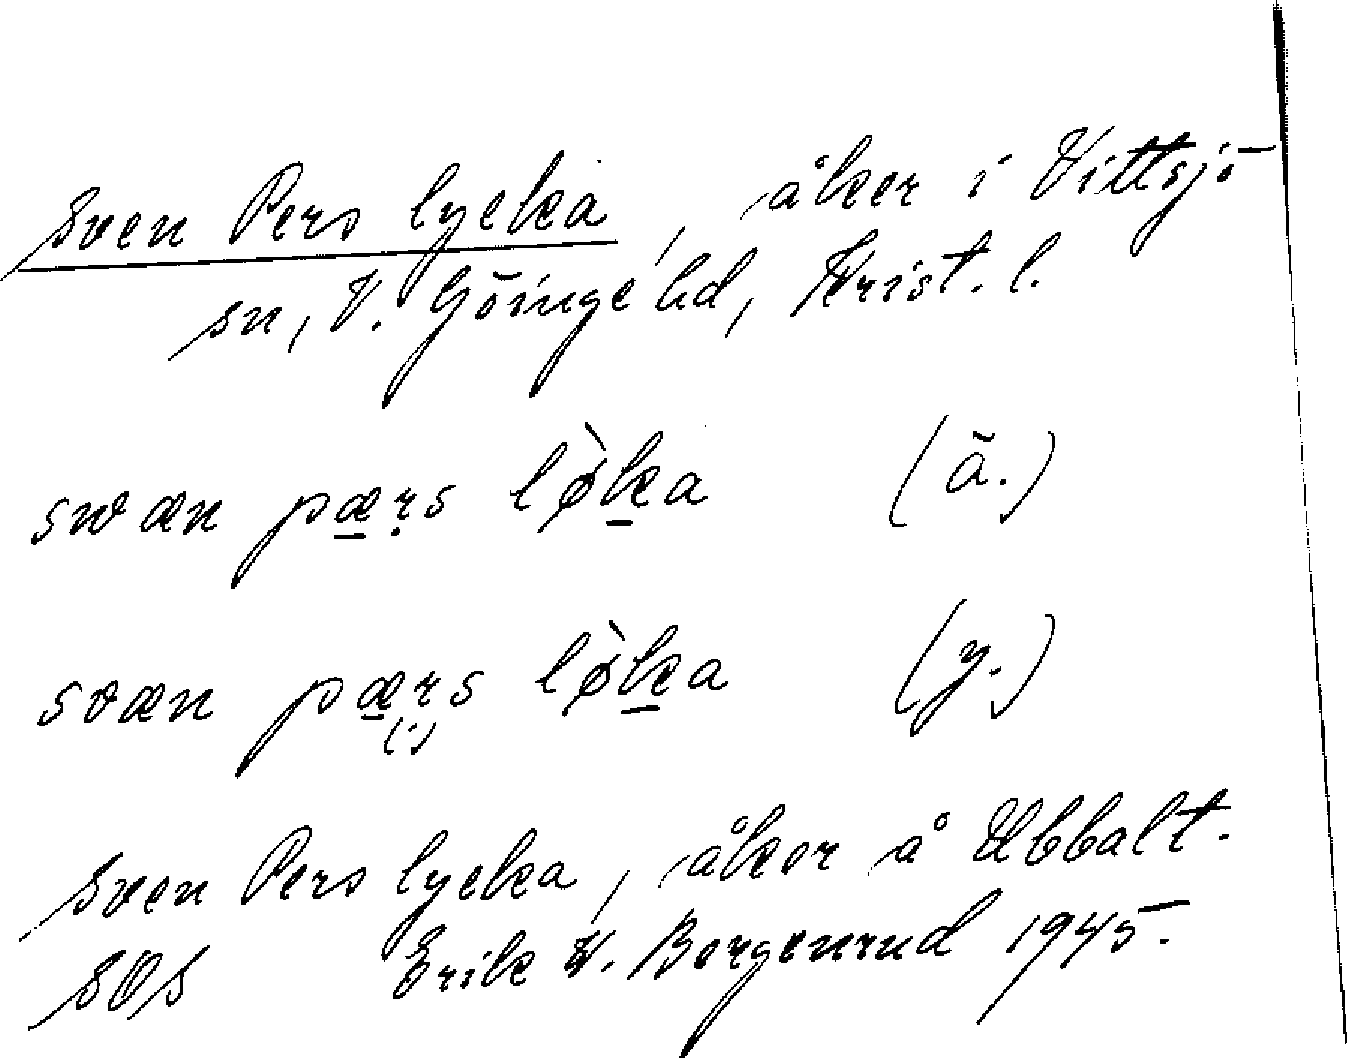 Sven Pers lycka, åker i Vittsjö
sn, V. Göinge hd, Krist. l.
swæn pæ̲ṛs lø̀k̲a (ä.)
svæn pæ̲ṛs lø̀k̲a (y.)
(.)
Sven Pers lycka, åker å Ubbalt.
SOS Erik W. Bergenrud 1945.